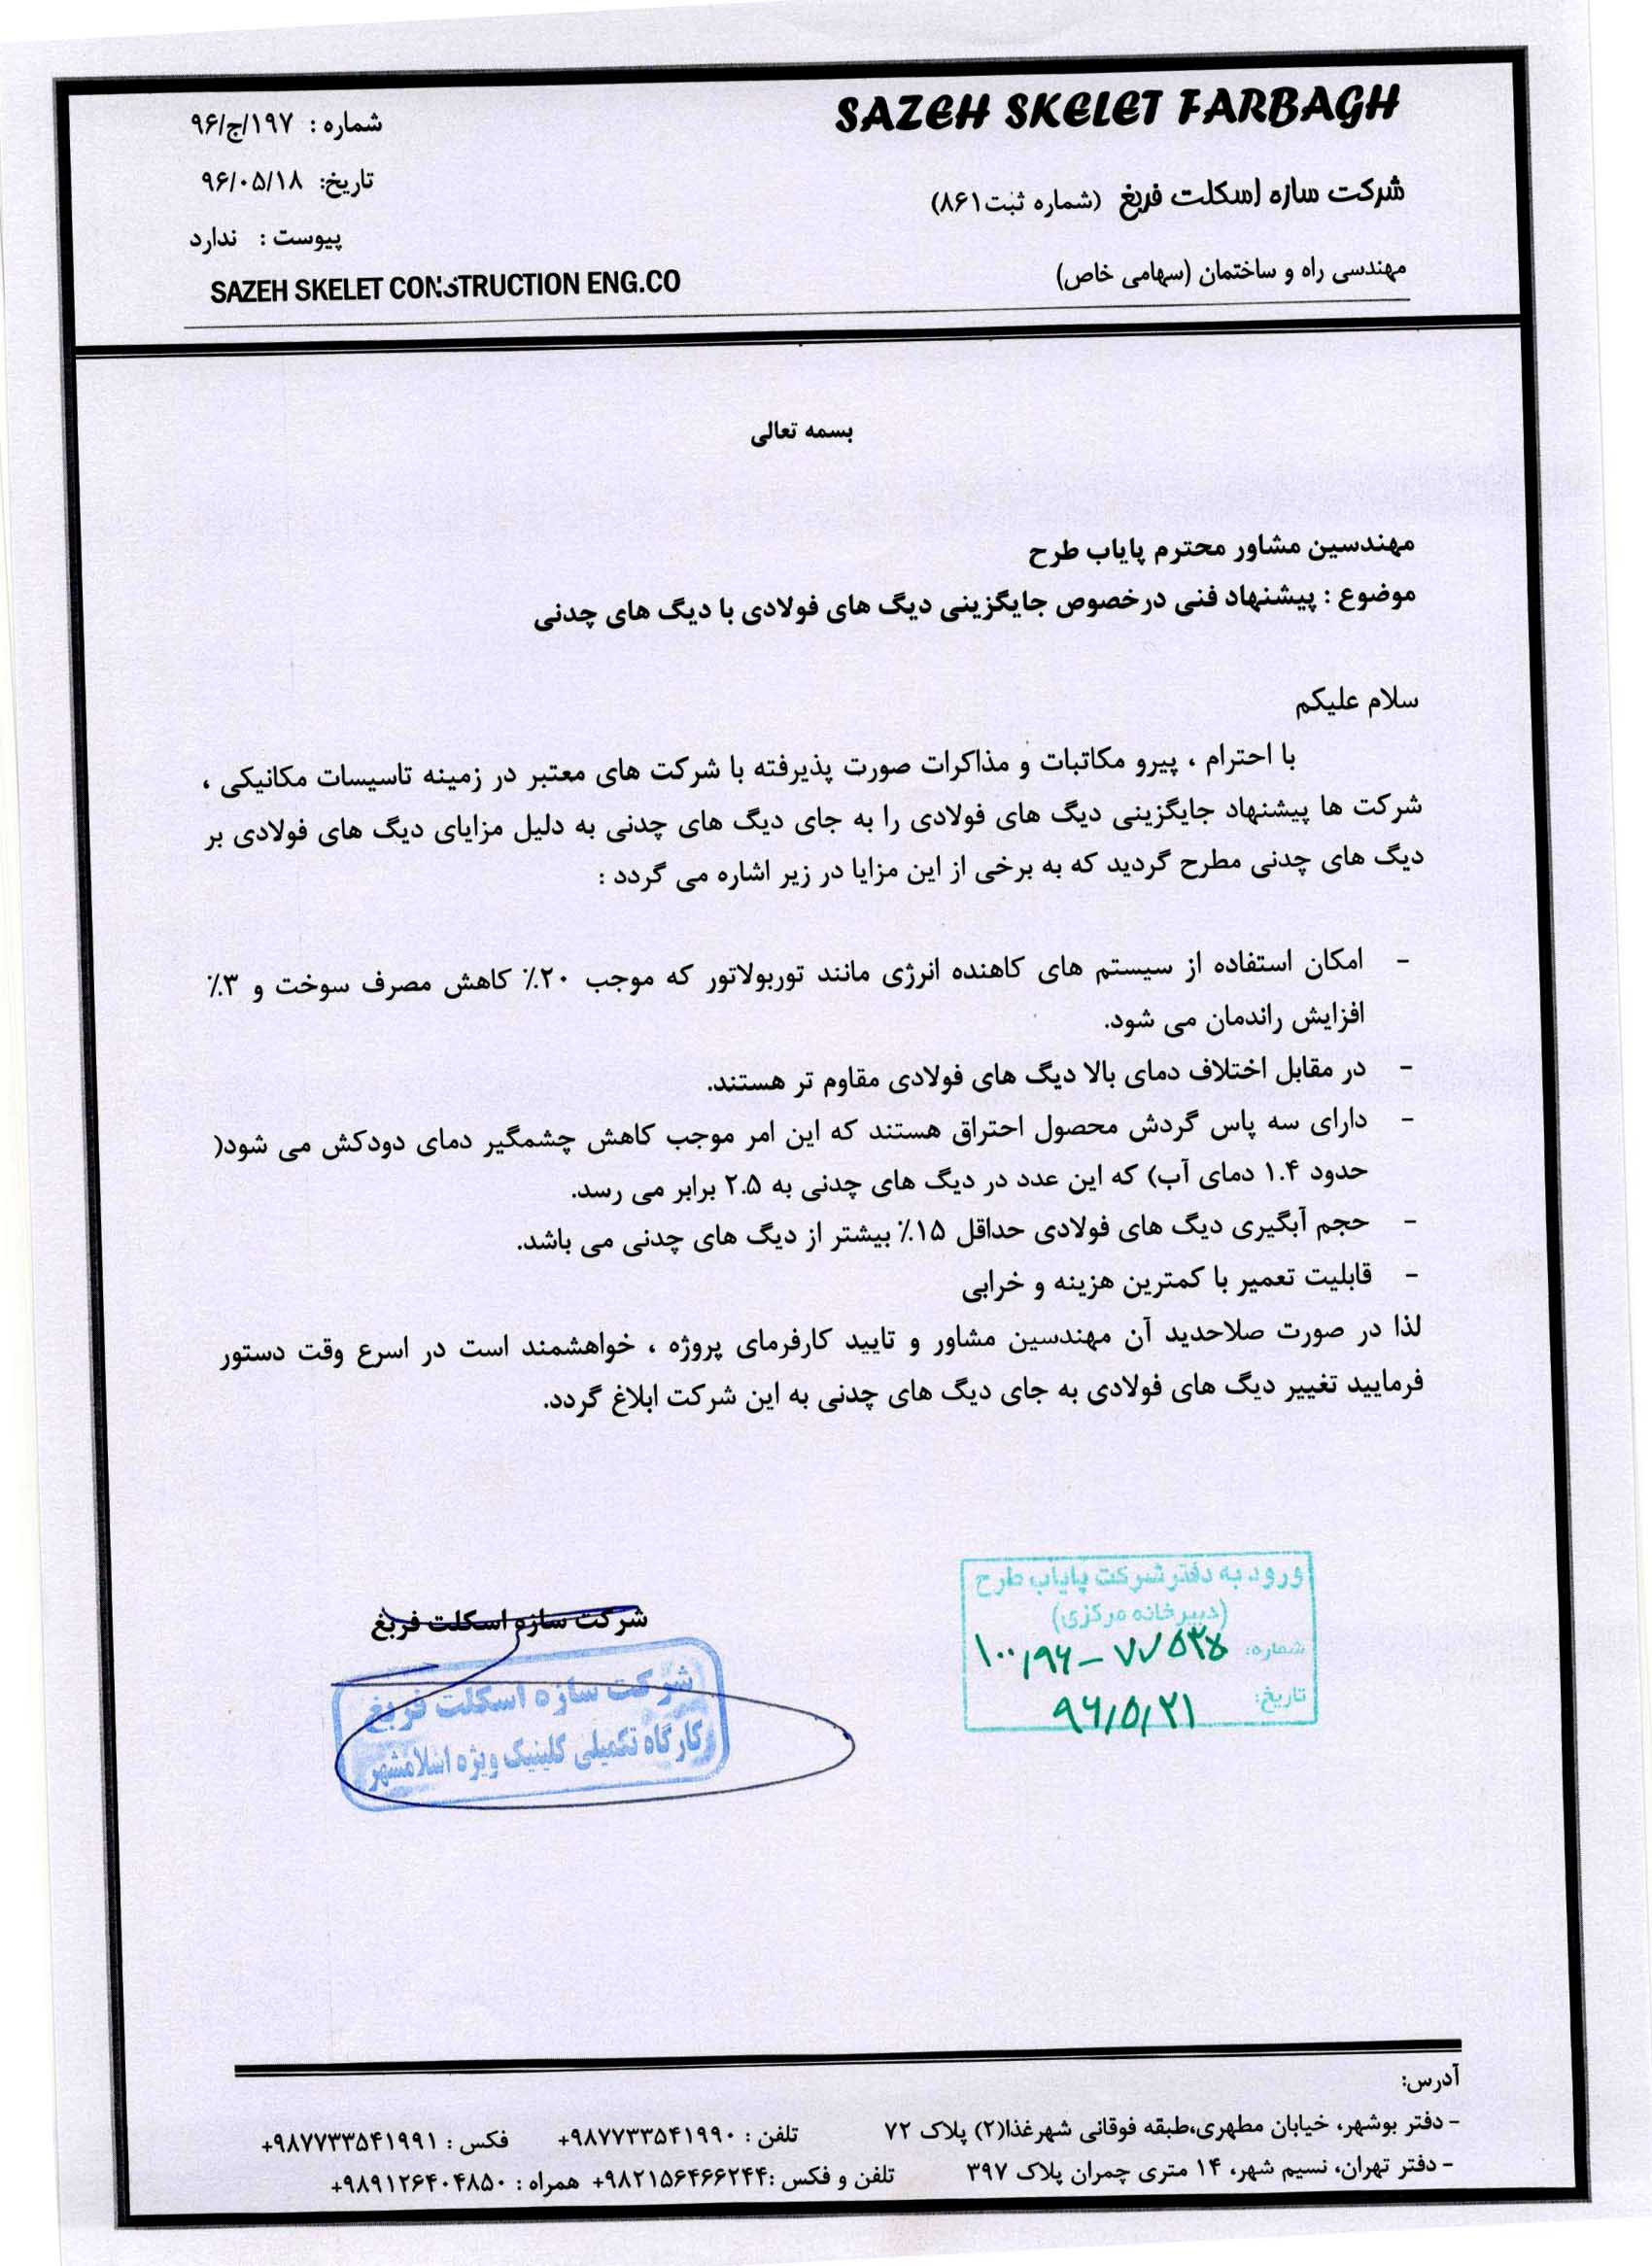 SAZEH SKELET FARBAGH
شرکت سازه اسکلت فربغ (شماره ثبت۸۶۱)
مهندسی راه و ساختمان (سهامی خاص)
شماره : ۱۹۷/ج/۹۶
تاریخ: ۹۶/۰۵/۱۸
پیوست : ندارد
SAZEH SKELET CONSTRUCTION ENG.CO
بسمه تعالی
مهندسین مشاور محترم پایاب طرح
موضوع : پیشنهاد فنی درخصوص جایگزینی دیگ های فولادی با دیگ های چدنی
سلام علیکم
با احترام ، پیرو مکاتبات و مذاکرات صورت پذیرفته با شرکت های معتبر در زمینه تاسیسات مکانیکی ،
شرکت ها پیشنهاد جایگزینی دیگ های فولادی را به جای دیگ های چدنی به دلیل مزایای دیگ های فولادی بر
دیگ های چدنی مطرح گردید که به برخی از این مزایا در زیر اشاره می گردد :
- امکان استفاده از سیستم های کاهنده انرژی مانند توربولاتور که موجب ۲۰٪ کاهش مصرف سوخت و ۳٪
افزایش راندمان می شود.
- در مقابل اختلاف دمای بالا دیگ های فولادی مقاوم تر هستند.
- دارای سه پاس گردش محصول احتراق هستند که این امر موجب کاهش چشمگیر دمای دودکش می شود(
حدود ۱.۴ دمای آب) که این عدد در دیگ های چدنی به ۲.۵ برابر می رسد.
- حجم آبگیری دیگ های فولادی حداقل ۱۵٪ بیشتر از دیگ های چدنی می باشد.
- قابلیت تعمیر با کمترین هزینه و خرابی
لذا در صورت صلاحدید آن مهندسین مشاور و تایید کارفرمای پروژه ، خواهشمند است در اسرع وقت دستور
فرمایید تغییر دیگ های فولادی به جای دیگ های چدنی به این شرکت ابلاغ گردد.
ورود به دفتر شرکت پایاب طرح
(دبیرخانه مرکزی)
شماره:
تاریخ: ۹۶/۵/۲۱
شرکت سازه اسکلت فربغ
شرکت سازه اسکلت فربغ
کارگاه تکمیلی کلینیک ویژه اسلامشهر
آدرس:
- دفتر بوشهر، خیابان مطهری،طبقه فوقانی شهرغذا(۲) پلاک ۷۲ تلفن : ۹۸۷۷۳۳۵۴۱۹۹۰+ فکس : ۹۸۷۷۳۳۵۴۱۹۹۱+
- دفتر تهران، نسیم شهر، ۱۴ متری چمران پلاک ۳۹۷ تلفن و فکس :۹۸۲۱۵۶۴۶۶۲۴۴+ همراه : ۹۸۹۱۲۶۴۰۴۸۵۰+